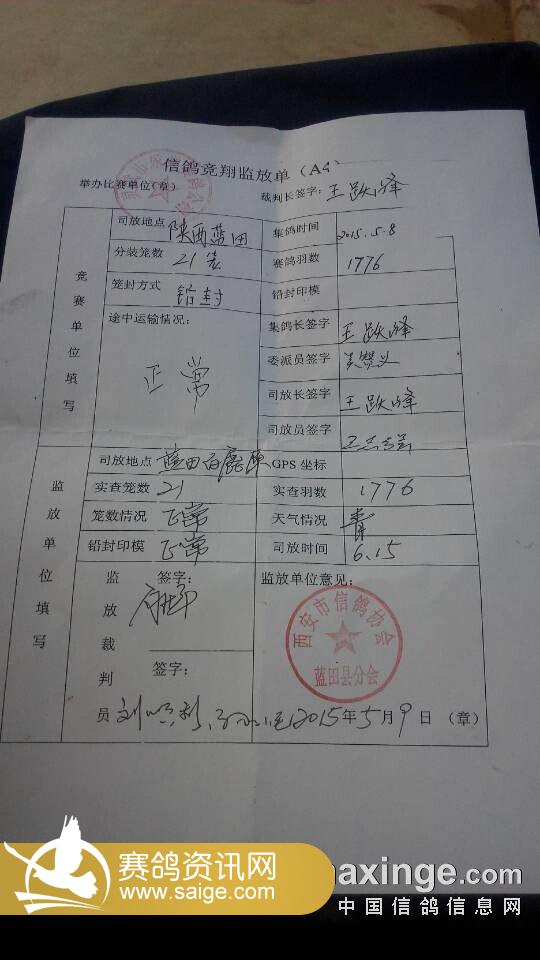 信鸽竞翔监放单（A4）
举办比赛单位（章） 裁判长签字：王跃峰
竞赛单位填写
司放地点 陕西蓝田 集鸽时间 2015.5.8
分装笼数 21笼 赛鸽羽数 1776
笼封方式 铅封 铅封印模
途中运输情况： 正常 集鸽长签字 王跃峰
委派员签字
司放长签字 王跃峰
司放员签字
监放单位填写
司放地点 蓝田白鹿原 GPS坐标
实查笼数 21 实查羽数 1776
笼数情况 正常 天气情况
铅封印模 正常 司放时间 6.15
监放裁判员 签字： 监放单位意见：
签字：
西安市信鸽协会
蓝田县分会
刘顺利 2015年5月9日（章）
赛鸽资讯网
www.saige.com
axinge.com
中国信鸽信息网